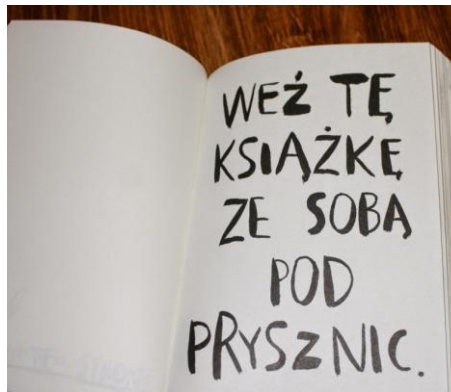 WEŹ TĘ
KSIĄŻKĘ
ZE SOBĄ
POD
PRYSZNIC.